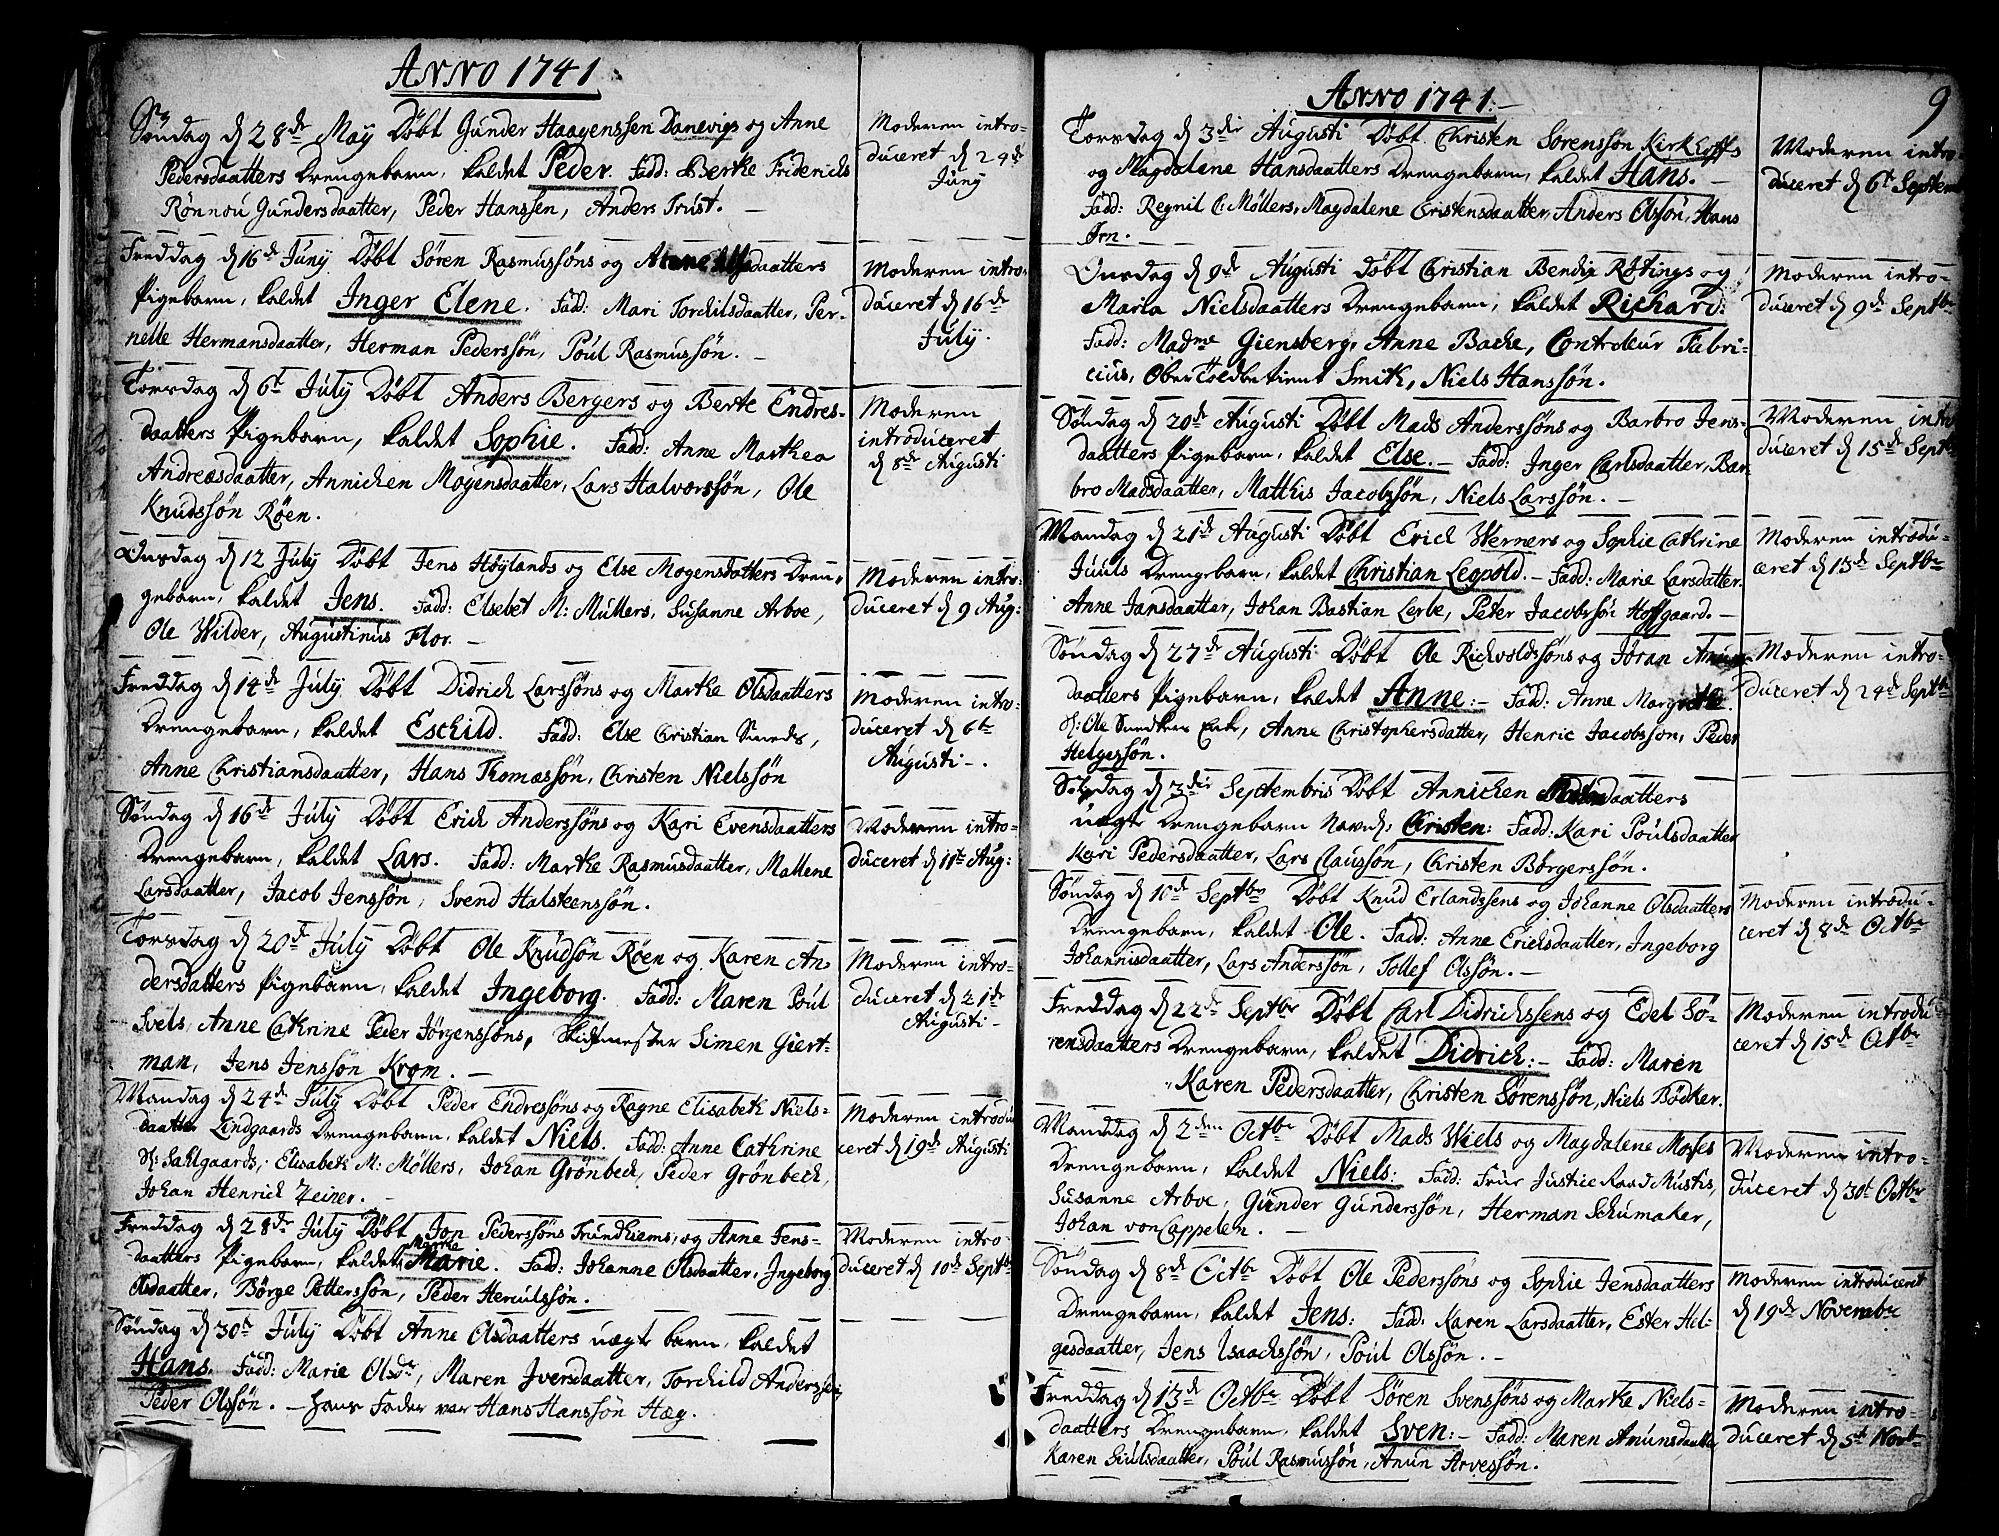 Anno 1741
Søndag d 28de May Døbt Gunder Haagenssen Danevigs og Anne
Pedersdaatters Drengebarn, kaldet Peder. Fadd: Berthe Friderichs
Rønnou Gundersdaatter, Peder Hanssen, Anders Trust. —
Moderen intro-
duceret d 24de
Juny
Freddag d 16de Juny Døbt Søren Rasmussøns og Anne
Pigebarn, kaldet Inger Elene. Fadd: Mari Torchilsdaatter, Per-
nelle Hermansdaatter, Herman Pederssøn, Poul Rasmussøn. —
Moderen intro-
duceret d 16de
July.
Torsdag d 6t July Døbt Anders Bergers og Berte Endres-
daatters Pigebarn, kaldet Sophie. Fadd: Anne Marthea
Andreasdaatter, Annichen Mogensdaatter, Lars Halvorssøn, Ole
Knudssøn Røen.
Moderen
introduceret
d 8de Augusti
Onsdag d 12 July Døbt Jens Høylands og Else Mogensdatters Dren-
gebarn, kaldet Jens. Fadd: Elsebet M: Mullers, Susanne Arboe,
Ole Wilder, Augustinus Flor. —
Moderen intro-
duceret d 9 Aug:
Freddag d 14de July Døbt Didrich Larssøns og Marthe Olsdaatters
Drengebarn, kaldet Eschild. Fadd: Else Christian Smeds,
Anne Christiansdaatter, Hans Thomassøn, Christen Nielssøn
Moderen intro-
duceret d 6te
Augusti -.
Søndag d 16de July Døbt Erich Anderssøns og Kari Evensdaatters
Drengebarn, kaldet Lars. Fadd: Marthe Rasmusdaatter, Mallene
Larsdaatter, Jacob Jenssøn, Svend Halsteenssøn.
Moderen intro-
duceret d 11te Aug:
Torsdag d 20de July Døbt Ole Knudsøn Røen og Karen An-
dersdatters Pigebarn, kaldet Ingeborg. Fadd: Maren Poul
Svels, Anne Cathrine Peder Jørgenssøns, Skichtmester Simen Giert-
man, Jens Jenssøn Krom. —
Moderen intro-
duceret d 21de
Augusti -
Mandag d 24de July Døbt Peder Endressøns og Ragne Elisabeth Niels-
daatter Lindgaards Drengebarn, kaldet Niels. Fadd: Anne Cathrine
Sahlgaards, Elisabeth M: Møllers, Johan Grønbech, Peder Grønbech,
Johan Henrich Zeiner. —
Moderen introdu-
ceret d 19de Augusti
Freddag d 28de July Døbt Jon Pederssøns Trundhiems, og Anne Jens-
daatters Pigebarn, kaldet Marthe Marie. Fadd: Johanne Olsdaatter, Ingeborg
Olsdaatter, Børge Petterssøn, Peder Herculssøn.
Moderen intro-
duceret d 10de Septbr
Søndag d 30te July Døbt Anne Olsdaatters uægte barn, kaldet
Hans. Fadd: Marie Olsdr, Maren Iversdaatter, Torchild Anderssen,
Peder Olssøn. — hans Fader var Hans Hanssøn Hæg.
Anno 1741. —
9
Torsdag d 3die Augusti Døbt Christen Sørenssøn Kirkhoffs
og Magdalene Hansdaatters Drengebarn, kaldet Hans. —
Fadd: Regnil C: Møllers, Magdalene Christensdaatter, Anders Olssøn, Hans
Irn.
Moderen intro-
duceret d 6te Septem
Onsdag d 9de Augusti Døbt Christian Bendix Røtings og
Maria Nielsdaatters Drengebarn, kaldet Richard:
Fadd: Madme Giensberg, Anne Bache, Controleur Fabri-
cius, Ober Toldbetient Smith, Niels Hanssøn.
Moderen intro-
duceret d 9de Septbr
Søndag d 20de Augusti Døbt Mads Anderssøns og Barbro Jens-
daatters Pigebarn, kaldet Else. — Fadd: Inger Carlsdaatter, Bar-
bro Madsdaatter, Matthis Jacobssøn, Niels Larssøn. —
Moderen intro
duceret d 15de Septbr
Mandag d 21de Augusti Døbt Erich Werners og Sophie Cathrine
Juuls Drengebarn, kaldet Christian Leopold. — Fadd: Marie Larsdatter.
Anne Jansdaatter, Johan Bastian Lerbe, Peter Jacobssøn Hoffgaard. —
Moderen introdu-
ceret d 13de Septbr
Søndag d 27de Augusti Døbt Ole Richvoldssøns og Jøran
daatters Pigebarn, kaldet Anne: — Fadd: Anne Margrethe
Sl: Ole Enke, Anne Christophersdatter, Henric Jacobsson, Peder
Helgessøn.
Moderen intro-
duceret d 24de Septbr
Søndag d 3die Septembris Døbt Annichen
uægte Drengebarn navnl: Christen: Fadd: Kari Poulsdaatter
Kari Pedersdaatter, Lars Claussøn, Christen Børgerssøn.
Søndag d 10de Septbr Døbt Knud Erlandssens og Johanne Olsdaatters
Drengebarn, kaldet Ole. Fadd: Anne Erichsdaatter, Ingeborg
Johannisdaatter, Lars Anderssøn, Tollef Olssøn. —
Moderen introdu-
ceret d 8de Octbr
Freddag d 22de Septbr Døbt Carl Didrichssens og Edel Sø-
rensdaatters Drengebarn, kaldet Didrich: — Fadd: Maren
Karen Pedersdaatter, Christen Sørenssøn, Niels Bødker.
Moderen introdu
ceret d 15de Octbr
Manddag d 2den Octbr Døbt Mads Wiels og Magdalene Moses
Drengebarn, kaldet Niels: Fadd: Frue Justice Raad Mustis,
Susanne Arboe, Gunder Gunderssøn, Herman Schumaker,
Johan von Cappelen.
Moderen intro-
duceret d 30t Octbr
Søndag d 8de Octbr Døbt Ole Pederssøns og Sophie Jensdaatters
Drengebarn, kaldet Jens: Fadd: Karen Larsdaatter, Ester Hel-
gesdaatter, Jens Isaachssøn, Poul Olssøn. —
Moderen introduceret
d 19de Novembr
Freddag d 13de Octbr Døbt Søren Svenssøns og Marthe Niels-
daatters Drengebarn, kaldet Sven: — Fadd: Maren Amunsdaatter,
Karen Giulsdaatter, Poul Rasmussøn, Amun Arvessøn.
Moderen intro-
duceret d 5t Novt-